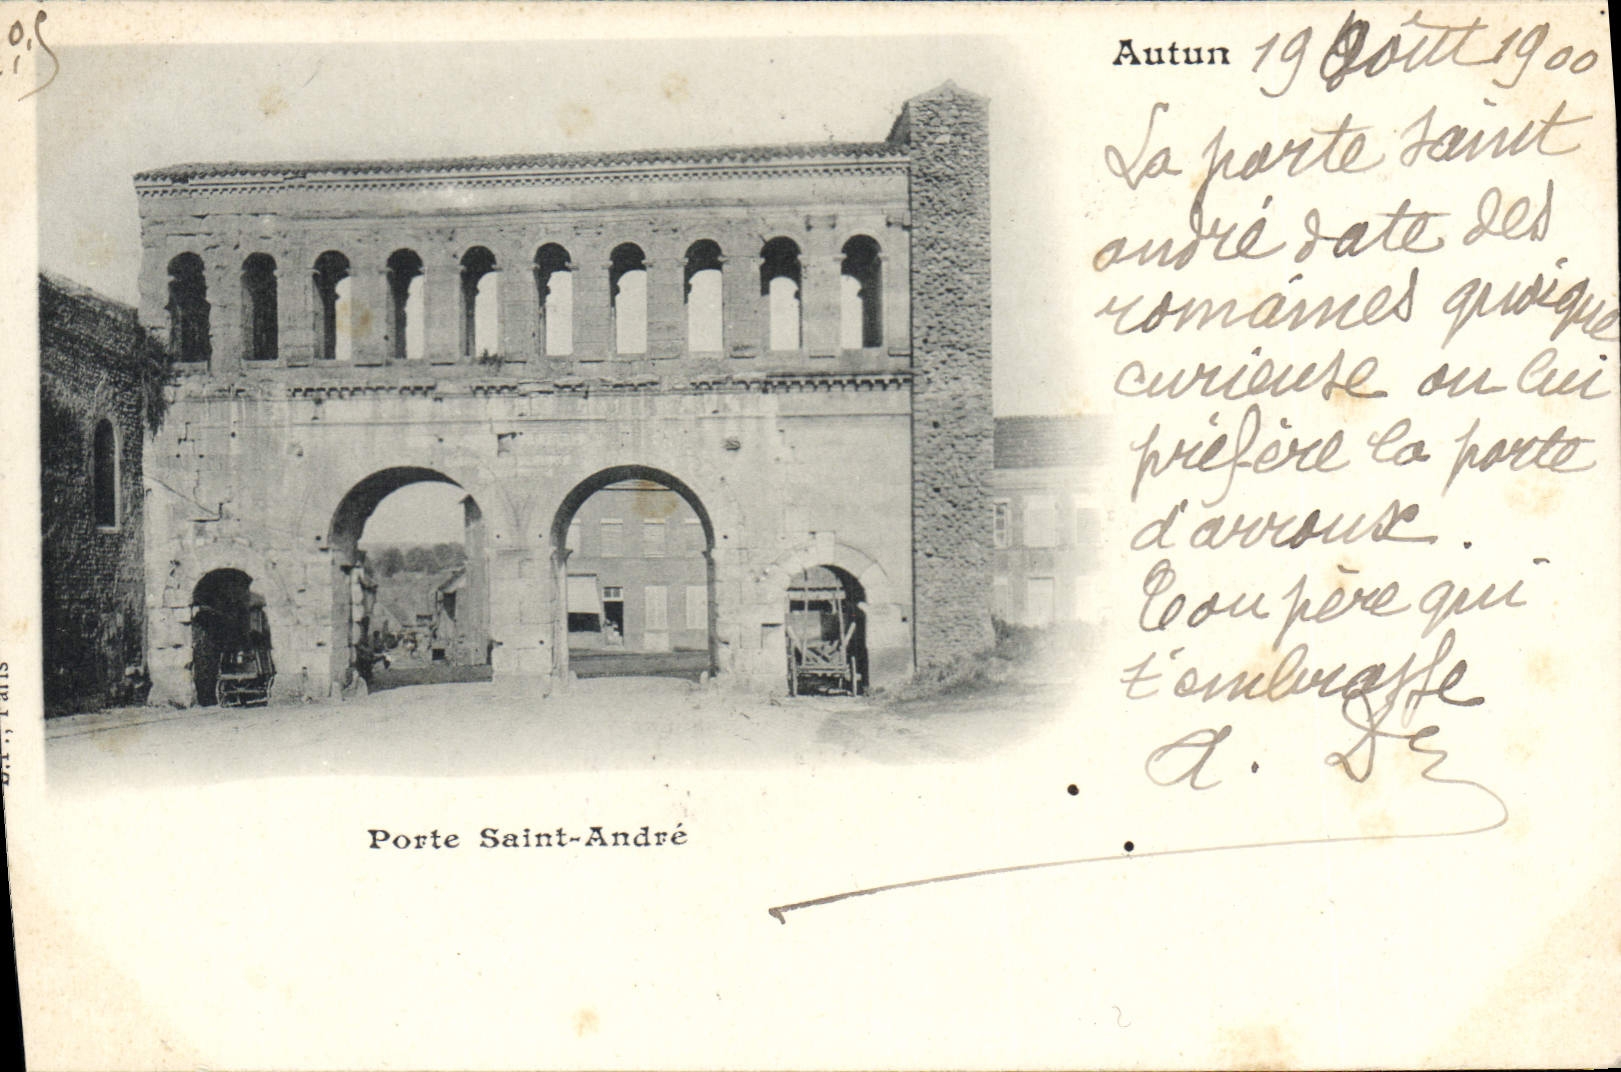 0,5
Autun 19 Août 1900
La porte saint
andré date des
romaines quoique
curieuse on lui
préfère la porte
d'arroux.
Ton père qui
t'embrasse
A. D
Porte Saint-André
Paris